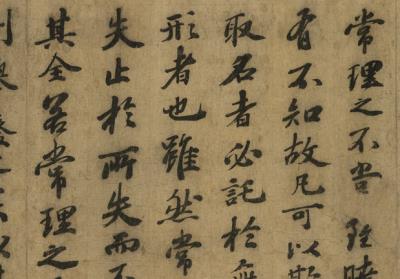 常理之不當雖曉
有不知故凡可以欺
取名者必託於無
形者也雖然常
失止於所失而不
其全若常理之